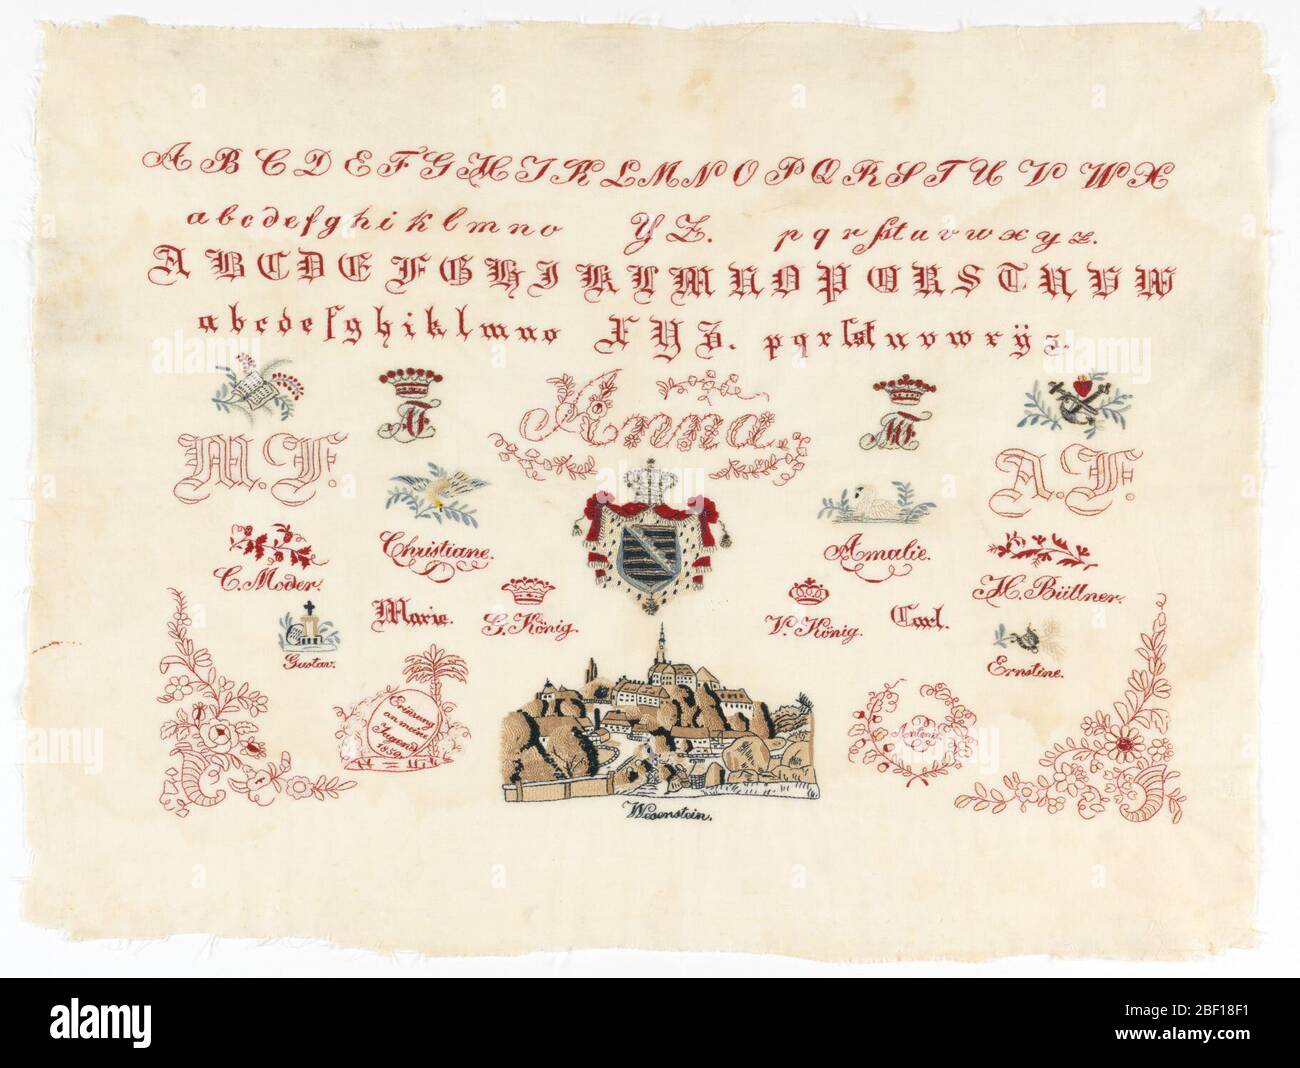 A B C D E F G H I K L M N O P Q R S T U V W X
a b c d e f g h i k l m n o Y Z. p q r ſst u v w x y z.
A B C D E F G H I K L M N O P Q R S T U V W
a b c d e f g h i k l m n o X Y Z. p q r ſst u v w x ÿ z.
Anna.
M. F. A. F.
Christiane. Amalie.
C. Moder. H. Büttner.
Marie. G. König. V. König. Carl.
Gustav. Ernstine.
an meine
Jugend
1859.
Antonie
Wesenstein.
alamy
Image ID: 2BF18F1
www.alamy.com